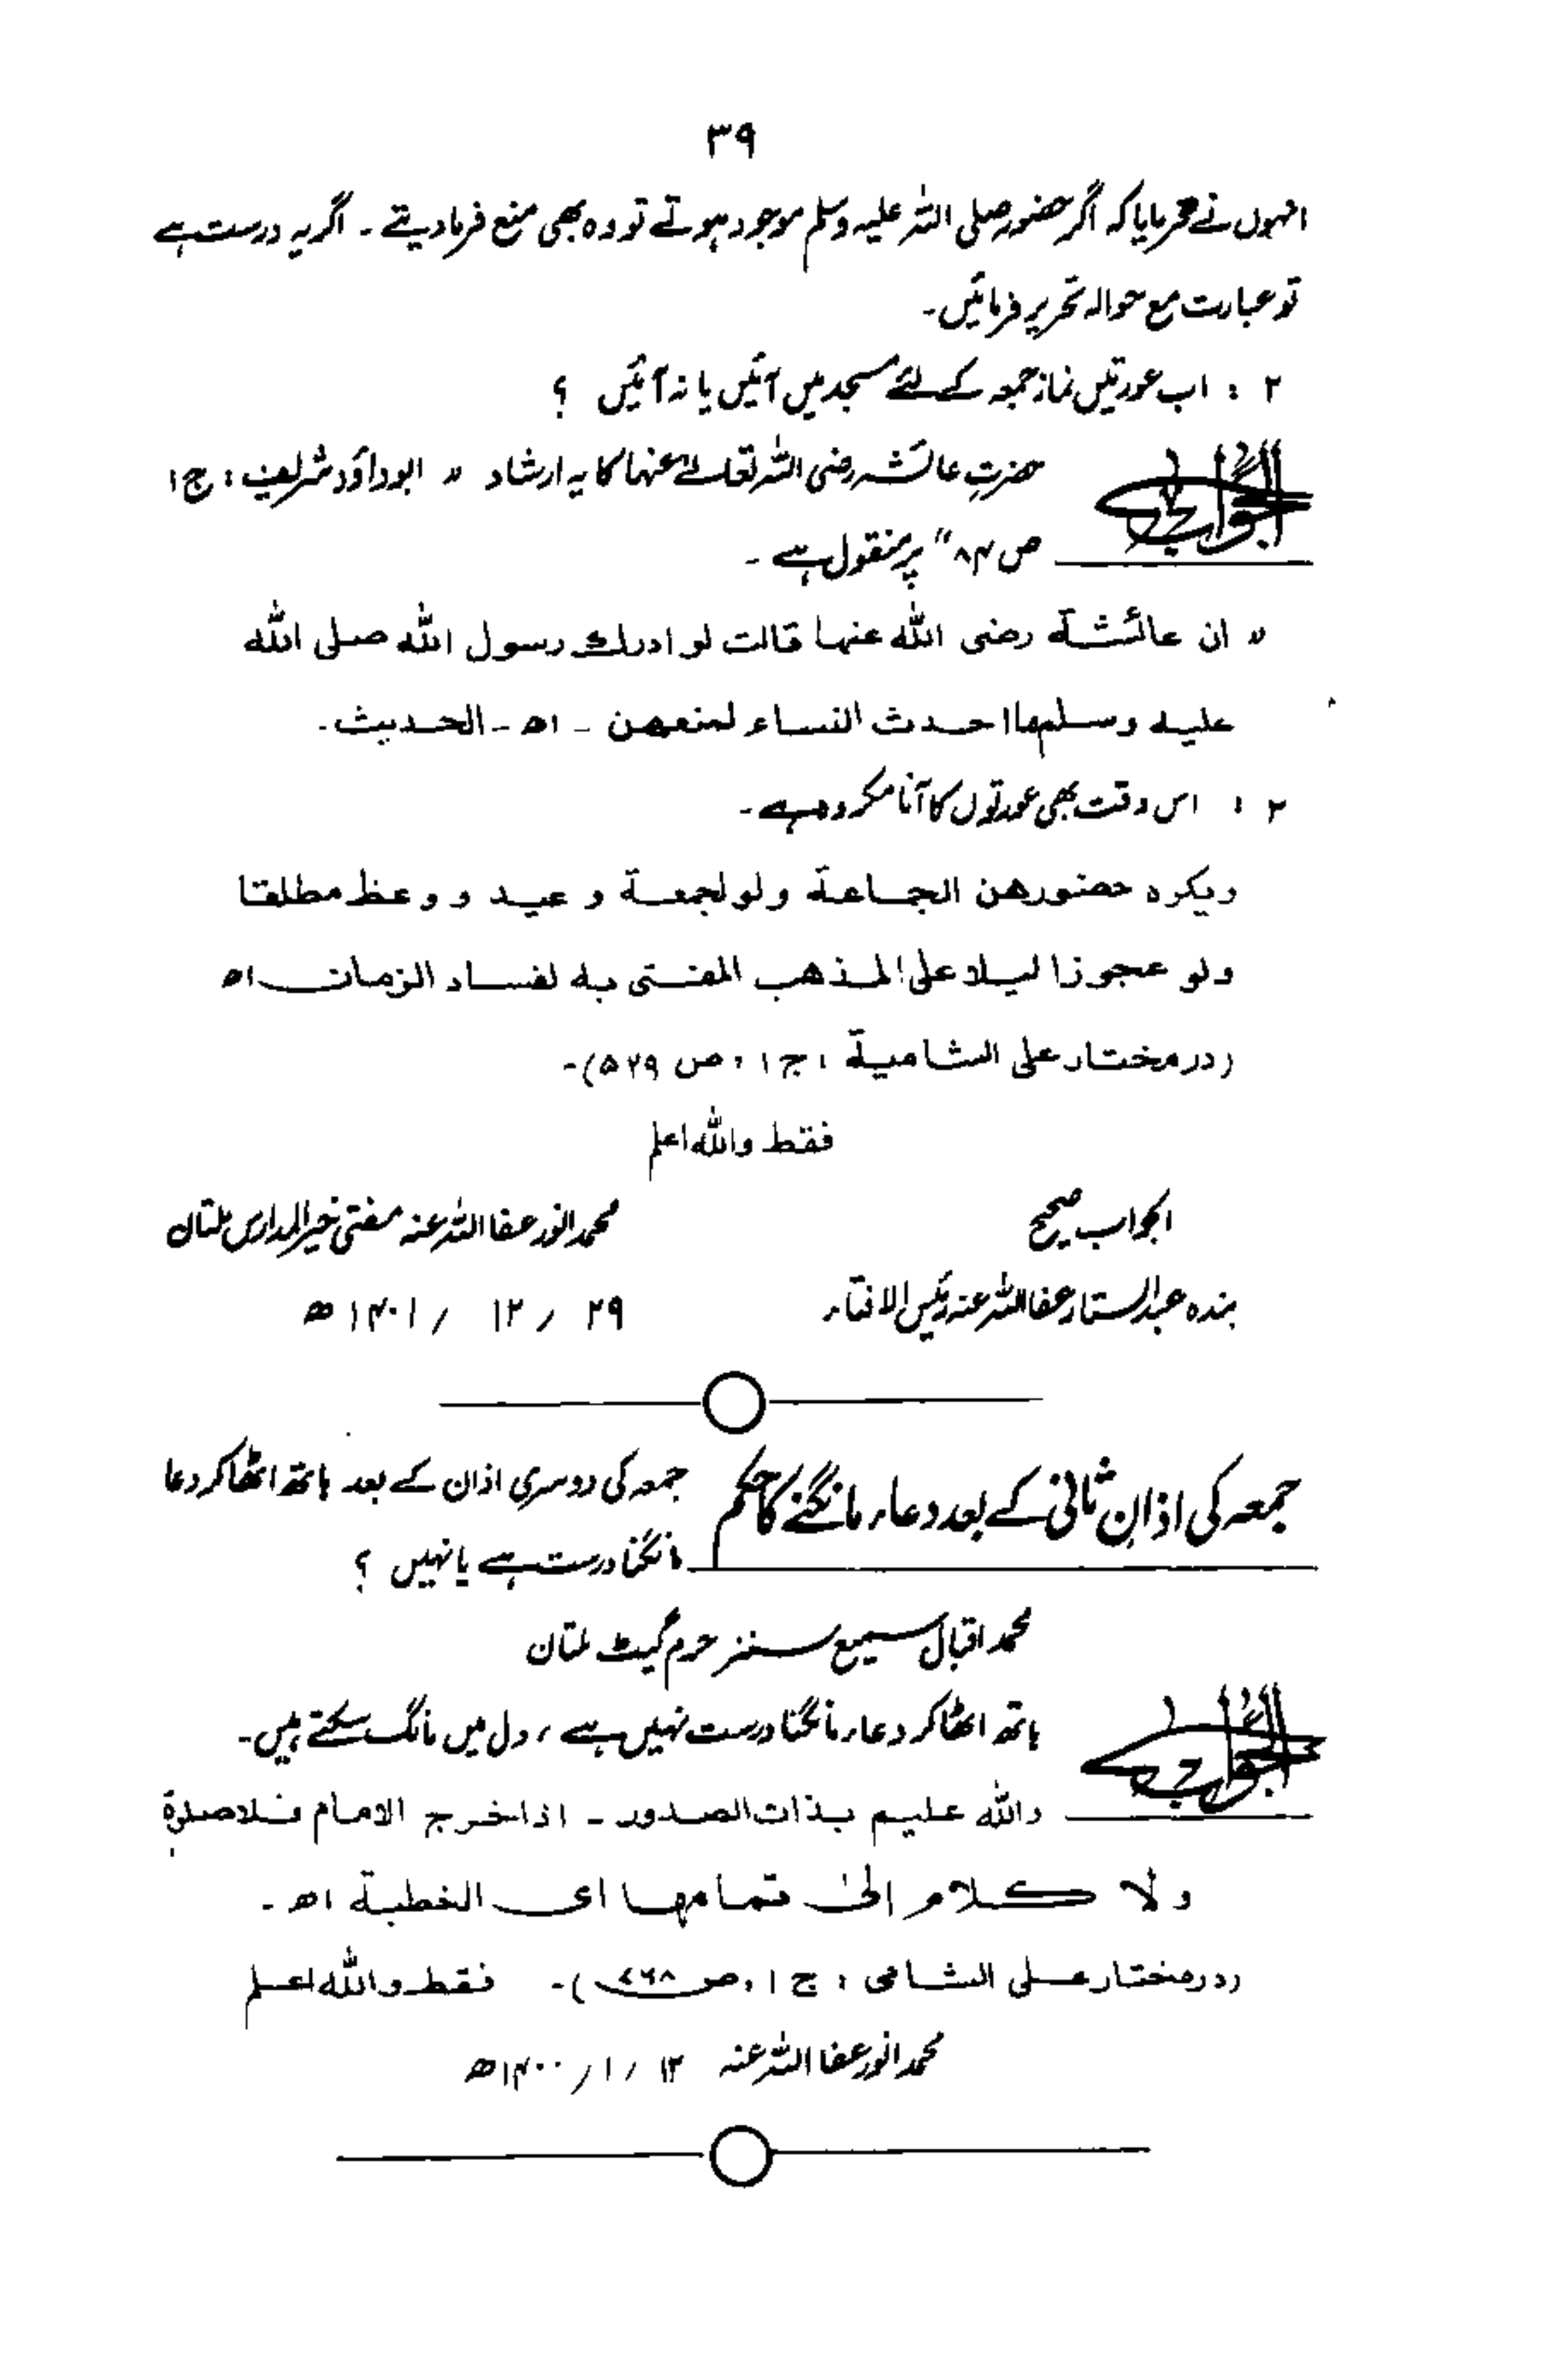 ۳۹
انہوں نے فرمایا کہ اگر حضور صلی اللہ علیہ وسلم موجود ہوتے تو وہ بھی منع فرما دیتے ۔ اگر یہ درست ہے
تو عبارت مع حوالہ تحریر فرمائیں۔
۲ : اب عورتیں نماز جمعہ کے لئے مسجد میں آئیں یا نہ آئیں ؟
الجواب حضرتِ عائشہ رضی اللہ تعالےٰ عنہا کا یہ ارشاد " ابوداؤد شریف : ج ۱
ص ۸۴ " پر منقول ہے ۔
" ان عائشة رضی الله عنها قالت لو ادرك رسول الله صلی الله
عليه وسلم ما احدث النساء لمنعهن ۔ اھ ۔ الحديث ۔
۲ : اس وقت بھی عورتوں کا آنا مکروہ ہے ۔
ويكره حضورهن الجماعة ولو لجمعة و عيد و وعظ مطلقا
ولو عجوزا ليلا على المذهب المفتى به لفساد الزمان اھ
(درمختار على الشامية ، ج ۱ ، ص ۵۲۹)۔
فقط واللہ اعلم
الجواب صحیح
بندہ عبدالستار عفا اللہ عنہ رئیس الافتاء
محمد انور عفا اللہ عنہ مفتی خیر المدارس ملتان
۲۹ / ۱۲ / ۱۴۰۱ ھ
جمعہ کی اذانِ ثانی کے بعد دعاء مانگنے کا حکم جمعہ کی دوسری اذان کے بعد ہاتھ اٹھا کر دعا
مانگنا درست ہے یا نہیں ؟
محمد اقبال سمیع سنز حرم گیٹ ملتان
الجواب ہاتھ اٹھا کر دعاء مانگنا درست نہیں ہے ، دل میں مانگ سکتے ہیں۔
والله عليم بذات الصدور ۔ اذا خرج الامام فلا صلوة
ولا كلام الىٰ تمامها اى الخطبة اھ ۔
(درمختار على الشامى : ج ۱ ، ص ۷۶۸)۔ فقط والله اعلم
محمد انور عفا اللہ عنہ ۱۲ / ۱ / ۱۴۰۰ ھ